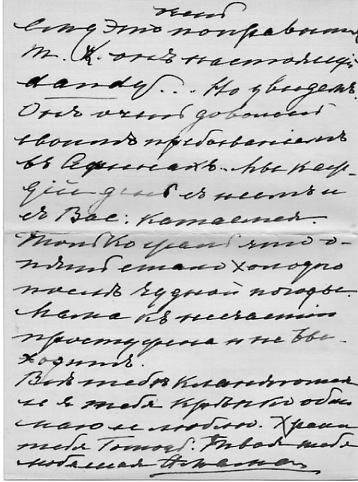 ему это понравит
т. к. онъ настоящій
dandy... Но увидемъ.
Онъ очень доволенъ
своимъ пребываніемъ
въ Афинахъ. Мы каж-
дый день съ нимъ и
съ Вас: катаемся.
Только жаль что о-
пять стало холодно
послѣ чудной погоды.
Мама къ несчастію
простужена и не вы-
ходитъ.
Всѣ тебѣ кланяются
и я тебя крѣпко обни
маю и люблю. Храни
тебя Господь. Твоя тебя
любящая